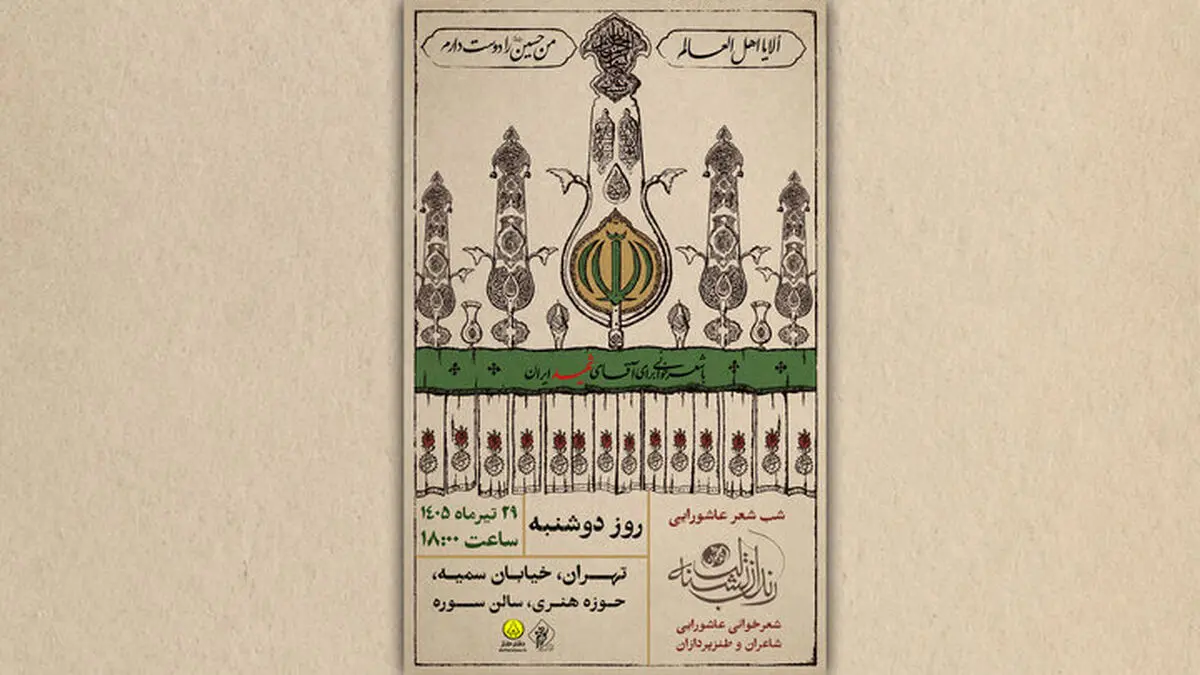 ألا یا اهل العالم
من حسین را دوست دارم
با شعرخوانی برای آقای شهید ایران
شب شعر عاشورایی
رندان تشنه لب
شعرخوانی عاشورایی
شاعران و طنزپردازان
روز دوشنبه
۲۹ تیرماه ۱۴۰۵
ساعت ۱۸:۰۰
تهران، خیابان سمیه،
حوزه هنری، سالن سوره